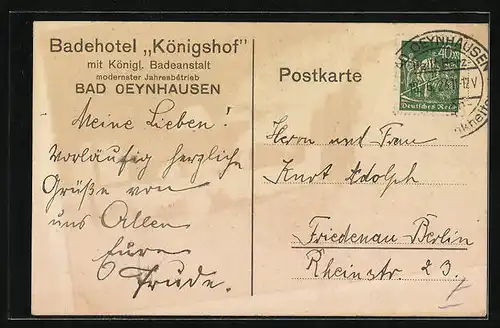 Badehotel „Königshof"
mit Königl. Badeanstalt
modernster Jahresbetrieb
BAD OEYNHAUSEN
Postkarte
OEYNHAUSEN
40
Deutsches Reich
Meine Lieben!
Vorläufig herzliche
Grüße von
uns Allen
Eure
Trude.
Herrn und Frau
Kurt Adolph
Friedenau Berlin
Rheinstr. 23.